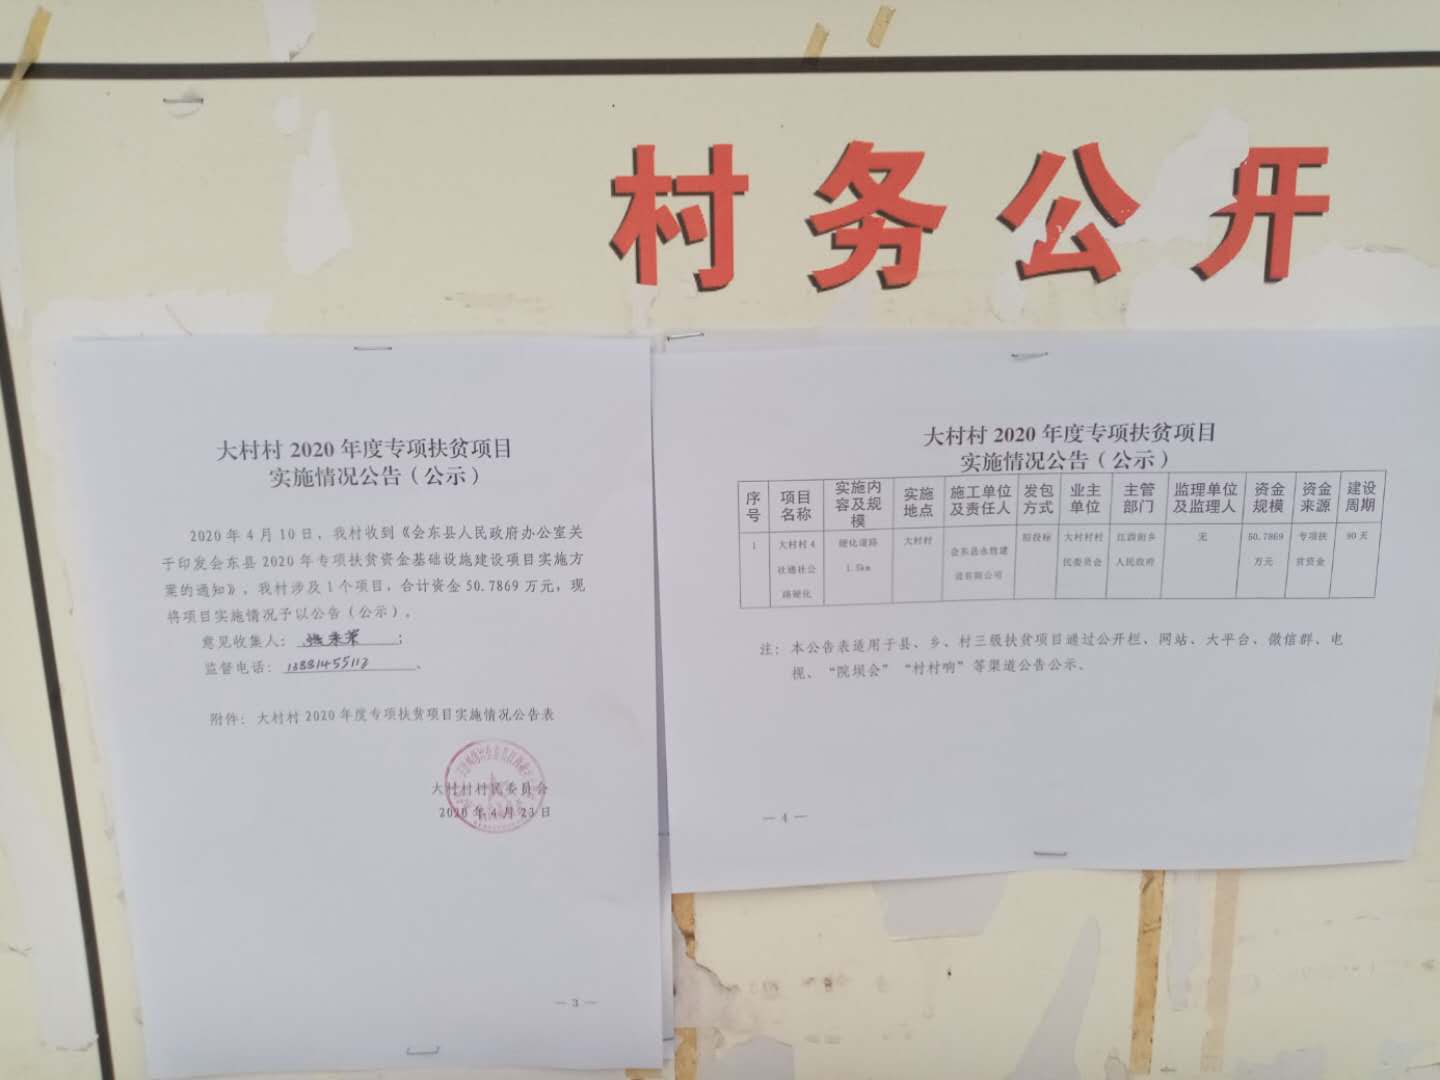 村务公开
大村村 2020 年度专项扶贫项目
实施情况公告（公示）
2020 年 4 月 10 日，我村收到《会东县人民政府办公室关
于印发会东县 2020 年专项扶贫资金基础设施建设项目实施方
案的通知》，我村涉及 1 个项目，合计资金 50.7869 万元，现
将项目实施情况予以公告（公示）。
意见收集人：
监督电话：13881455112
附件：大村村 2020 年度专项扶贫项目实施情况公告表
大村村村民委员会
2020 年 4 月 23 日
— 3 —
大村村 2020 年度专项扶贫项目
实施情况公告（公示）
序号 项目名称 实施内容及规模 实施地点 施工单位及责任人 发包方式 业主单位 主管部门 监理单位及监理人 资金规模 资金来源 建设周期
1 大村村 4 社通社公路硬化 硬化道路 1.5km 大村村 会东县永胜建设有限公司 招投标 大村村村民委员会 江西街乡人民政府 无 50.7869 万元 专项扶贫资金 90 天
注：本公告表适用于县、乡、村三级扶贫项目通过公开栏、网站、大平台、微信群、电
视、“院坝会”“村村响”等渠道公告公示。
— 4 —